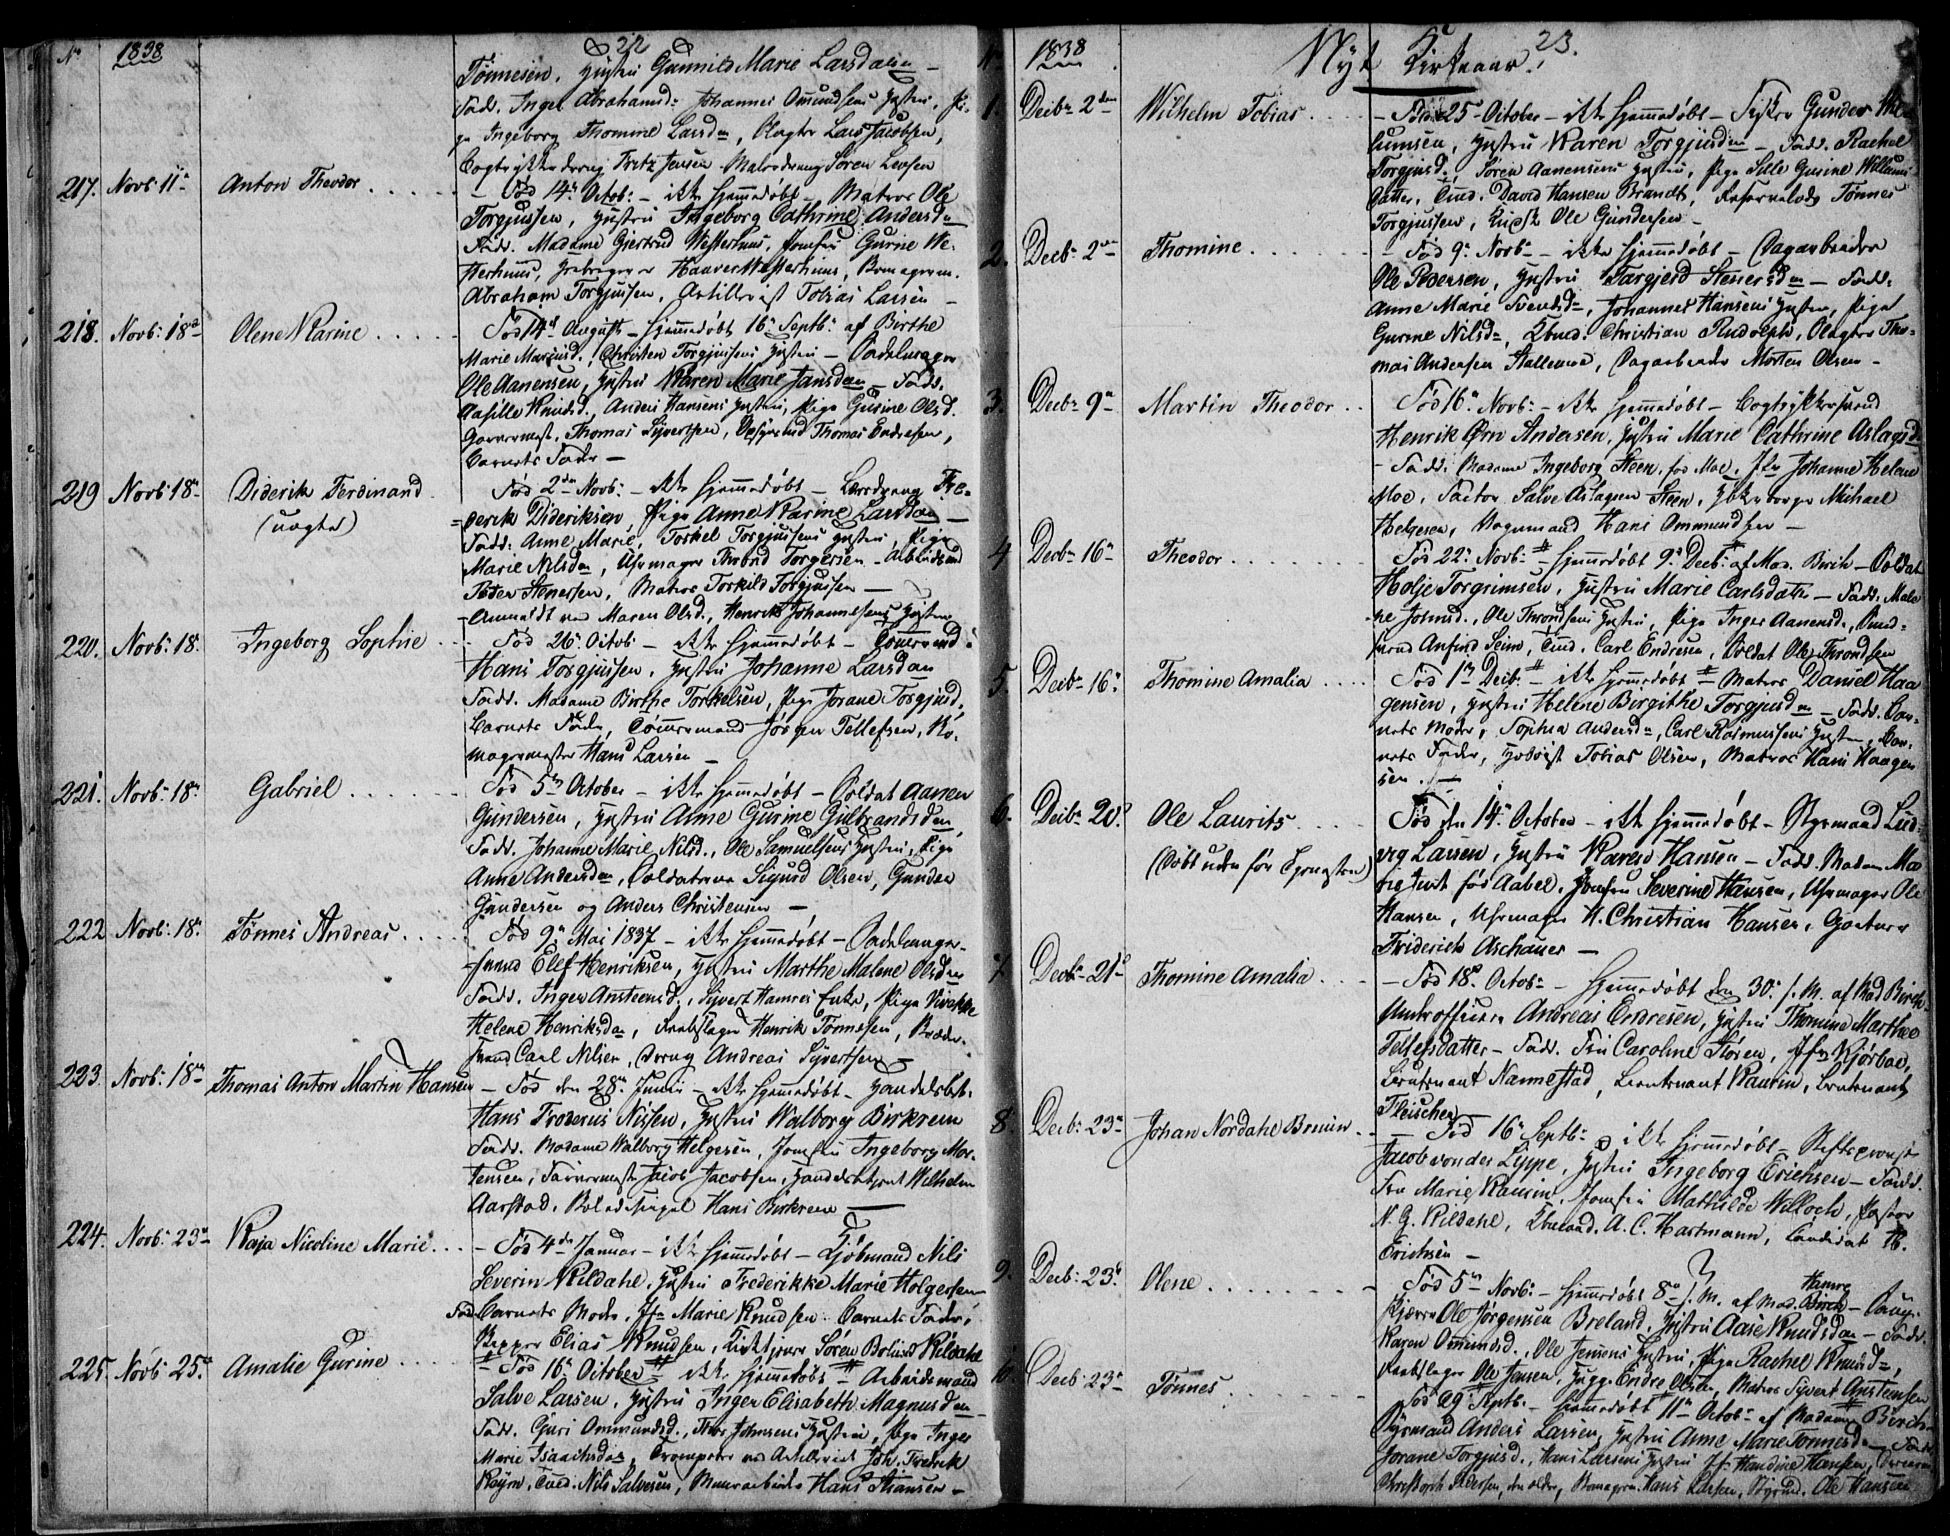 No 1838 22
Tønnesen, Hustru Gunnild Marie Larsdatter –
Fadd. Inger Abrahamsd: Johannes Omundsens Hustru, Pi-
ge Ingeborg Thomine Larsdr, Lars Jacobsen,
Fritz Jensen Søren Larsen
217. Novb: 11te Anton Theodor . . . .
– Fød 14de Octob: – ikke hjemmedøbt – Matros Ole
Torgjussen, Hustru Ingeborg Cathrine Andersdr
Fadd. Madame Gjertrud Westerhuus, Jomfru Gurine We-
sterhuus, Haaver Westerhuus,
Abraham Torgjussen, Tobias Larsen –
218. Novb: 18de Olene Karine . . . .
Fød 14de August – hjemmedøbt 16de Septb: af Birthe
Marie Mariusd., Christen Torgjussens Hustru – Sadelmager
Ole Aanensen, Hustru Karen Marie Jansdatter – Fadd.
Knudsd., Anders Hansens Hustru, Pige Gurine Olsd.
Thomas Syvertsen, Thomas Endresen,
Barnets Fader –
219 Novb: 18de Diderik Ferdinand
(uægte)
Fød 2den Novb: – ikke hjemmedøbt – Fre-
derik Dideriksen, Pige Anne Karine Larsdatter –
Fadd: Anne Marie, Torkel Torgjussens Hustru, Pige
Marie Nilsdr, Uhrmager Thrond Torgersen – Arbeidsmand
Peder Stenersen, Matros Torkild Torgjussen –
Anmeldt ved Maren Olsd., Henrik Johannesens Hustru
220. Novb: 18. Ingeborg Sophie . .
– Fød 26de Octob – ikke hjemmedøbt – Tømmermand
Hans Torgjussen, Hustru Johanne Larsdatter
Fadd. Madame Birthe Torkelsen, Pige Jorane Torgjusd.,
Barnets Fader, Tømmermand Jørgen Tellefsen,
Hans Larsen –
221. Novb: 18de Gabriel . . . . . .
Fød 5te October – ikke hjemmedøbt – Soldat Aanen
Gundersen, Hustru Anne Gurine Gulbrandsdatter
Fadd. Johanne Marie Nilsd., Ole Samuelsens Hustru, Pige
Anne Andersdatter, Soldaterne Sigurd Olsen, Gunder
Gundersen og Anders Christensen –
222 Novb: 18de Tønnes Andreas . . . .
Fød 9de Mai 1837 – ikke hjemmedøbt – Sadelmager-
svend Elef Henriksen, Hustru Marthe Malene Olsdr
Fadd. Inger Ansteensd., Syvert Hamres Enke, Pige
Helene Henriksdr, Henrik Tønnesen,
Carl Nilsen, Dreng Andreas Syvertsen –
223. Novb: 18de Thomas Anton Martin Hansen
– Fød den 28de Junii – ikke hjemmedøbt – Handelsbet:
Hans Froderus Nissen, Hustru Walborg Birkrem
Fadd. Madame Walborg Helgesen, Jomfru Ingeborg Mor-
tensen, Jacob Jacobsen, Handelsbetjent Wilhelm
Aarstad, Hans Birkrem –
224. Novb: 23de Kaja Nicoline Marie . . .
– Fød 4de Januar – ikke hjemmedøbt – Kjøbmand Nils
Severin Kildahl, Hustru Frederikke Marie Holgersen
Fadd. Barnets Moder, Jfr Marie Knudsen, Barnets Fader,
Skipper Elias Knudsen, Søren Bolius Kildahl
225. Novb: 25de Amalie Gurine . . . .
– Fød 16de October – ikke hjemmedøbt – Arbeidsmand
Salve Larsen, Hustru Inger Elisabeth Magnusdr
Fadd. Guri Ommundsd., Johnsens Hustru, Pige Inger
Marie Isaachsdr, Trompeter ved Artilleriet Joh. Fredrik
Røyrn, Nils Salvesen, Hans Hansen –
No 1838 Nyt Kirkeaar. 23.
1. Decbr 2den Wilhelm Tobias . . . .
– Fød 25de October – ikke hjemmedøbt – Fisker Gunder Wil-
lumsen, Hustru Karen Torgjusdr – Fadd. Rachel
Torgjusd., Søren Aanensens Hustru, Pige Sille Gurine Willums-
datter, David Hansen Brandt, Tønnes
Torgjussen, Ole Gundersen –
2. Decbr 2den Thomine . . . . . .
– Fød 9de Novbr – ikke hjemmedøbt – Dagarbeider
Ole Pedersen, Hustru Targjerd Stenersdr – Fadd:
Anne Marie Svendsdr, Johannes Hansens Hustru, Pige
Gurine Nilsdr, Christian Rudolph, Tho-
mas Andersen Stallemo, Dagarbeider Morten Olsen –
3. Decbr 9de Martin Theodor . .
Fød 16de Novb: – ikke hjemmedøbt – Bogtrykkersvend
Henrik Ørn Andersen, Hustru Marie Cathrine Aslagsdr
– Fadd. Madame Ingeborg Steen, fød Moe, Jfr Johanne Helene
Moe, Factor Salve Aslagsen Steen, Michael
Helgesen, Vognmand Hans Ommundsen –
4 Decbr 16de Theodor . . . . . .
Fød 22de Novb: – hjemmedøbt 9de Decb: af Mad. Birch – Soldat
Holje Torgrimsen, Hustru Marie Carlsdatter – Fadd: Male-
ne Johnsd., Ole Throndsens Hustru, Pige Inger Aanensd.,
Anfind Seim, Carl Endresen, Soldat Ole Throndsen
5. Decbr 16de Thomine Amalia . . . .
Fød 1ste Decb: – ikke hjemmedøbt – Matros Daniel Haa-
gensen, Hustru Helene Birgithe Torgjusdr – Fadd. Bar-
nets Moder, Sophia Andersdr, Carl Rasmussens Hustru, Bar-
nets Fader, Tobias Olsen, Matros Hans Haagen-
sen . –
6. Decbr 20de Ole Laurits . . . .
(Døbt uden for Tjenesten)
Fød den 14de October – ikke hjemmedøbt – Styrmand Lud-
vig Larsen, Hustru Karen Hansen – Fadd. Madm Ma-
rie født Aabel, Jomfru Severine Hansen, Uhrmager Ole
Hansen, Uhrmager H. Christian Hansen, Gartner
Friderich Aschauer –
7. Decbr 21de Thomine Amalia . . .
– Fød 18de Octob: – hjemmedøbt den 30te s. M. af Mad Birch
Underofficeer Andreas Endresen, Hustru Thomine Marthea
Tellefsdatter – Fadd. Fru Caroline Støren, Jfr Kjørboe,
Lieutenant Nannestad, Lieutenant Raurin, Lieutenant
Fleischer –
8. Decb: 23de Johan Nordahl Bruun . .
– Fød 16de Septb: – ikke hjemmedøbt – Stiftsprovst
Jacob von der Lippe, Hustru Ingeborg Erichsen – Fadd.
Fru Marie Raurin, Jomfru Mathilde Willoch, Pastor
N. G. Kildahl, Kbmand. A. C. Hartmann, Candidat Th.
Erichsen –
9. Decb: 23de Olene . . . . . . .
Fød 5te Novb: – hjemmedøbt 8de s. M. af Mad. Birch Hamre –
Ole Jørgensen Breland, Hustru Aase Knudsdr – Fadd.
Karen Omundsd., Ole Jensens Hustru, Pige Rachel Knudsdr,
Ole Jensen, Endre Olsen, Matros Syvert Ansteensen
10. Decb: 23de Tønnes . . . . . .
Fød 29de Septb. – hjemmedøbt 11te Octob: af Madame Birch –
Styrmand Anders Larsen, Hustru Anne Marie Tønnesdr – Fadd.
Jorane Torgjusd., Hans Larsens Hustru, Jfr Handine Hansen,
Christoph Pedersen, den ældre, Hans Larsen, Styrmd. Ole Hansen